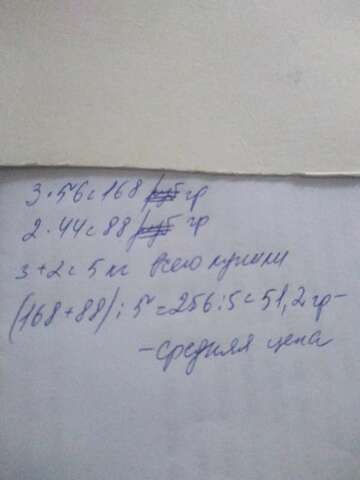 3·56=168 гр
2·44=88 гр
3+2=5 кг Всего купили
(168+88):5=256:5=51,2 гр-
-средняя цена